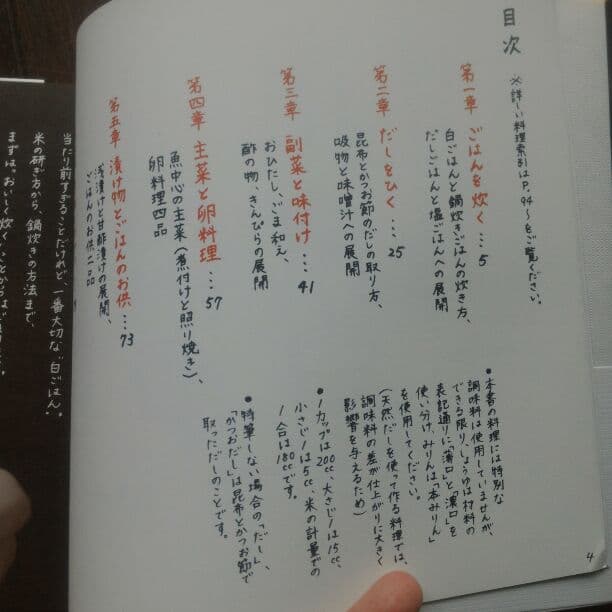 目次
※詳しい料理索引はP.94〜をご覧ください。
第一章 ごはんを炊く…5
白ごはんと鍋炊きごはんの炊き方、
だしごはんと塩ごはんへの展開
第二章 だしをひく…25
昆布とかつお節のだしの取り方、
吸物と味噌汁への展開
第三章 副菜と味付け…41
おひたし、ごま和え、
酢の物、きんぴらの展開
第四章 主菜と卵料理…57
魚中心の主菜(煮付けと照り焼き)、
卵料理四品
第五章 漬け物とごはんのお供…73
浅漬けと甘酢漬けの展開、
ごはんのお供二品
●本書の料理には特別な
調味料は使用していませんが、
できる限り、しょうゆは材料の
表記通りに「薄口」と「濃口」を
使い分け、みりんは「本みりん」
を使用してください。
(天然だしを使って作る料理では、
調味料の差が仕上がりに大きく
影響を与えるため)
●1カップは200cc、大さじ1は15cc、
小さじ1は5cc、米の計量での
1合は180ccです。
●特筆しない場合の「だし」、
「かつおだし」は昆布とかつお節で
取っただしのことです。
4
当たり前すぎることだけれど、一番大切な、白ごはん。
米の研ぎ方から、鍋炊きの方法まで、
まずは。おいしく炊くことからはじめましょう。